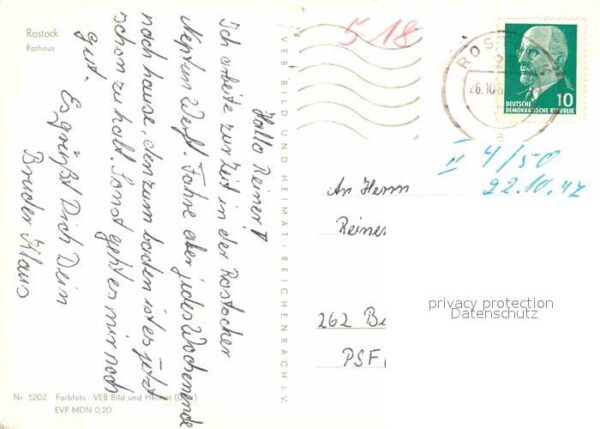 Rostock
Rathaus
Hallo Reiner!
Ich arbeite zur Zeit in der Rostocher
Neptun Werft. Fahre aber jedes Wochenende
nach hause, denn zum baden ist es jetzt
schon zu kalt. Sonst geht es mir noch
gut.
Es grüßt Dich Dein
Bruder Klaus
Nr. 5202 Farbfoto: VEB Bild und Heimat
EVP MDN 0,20
VEB BILD UND HEIMAT · REICHENBACH I. V.
5 18
ROS
2
26.10.6
a
DEUTSCHE
DEMOKRATISCHE REPUBLIK
10
II 4/50
22.10.47
An Herrn
Reiner
262 B
PSF
privacy protection
Datenschutz